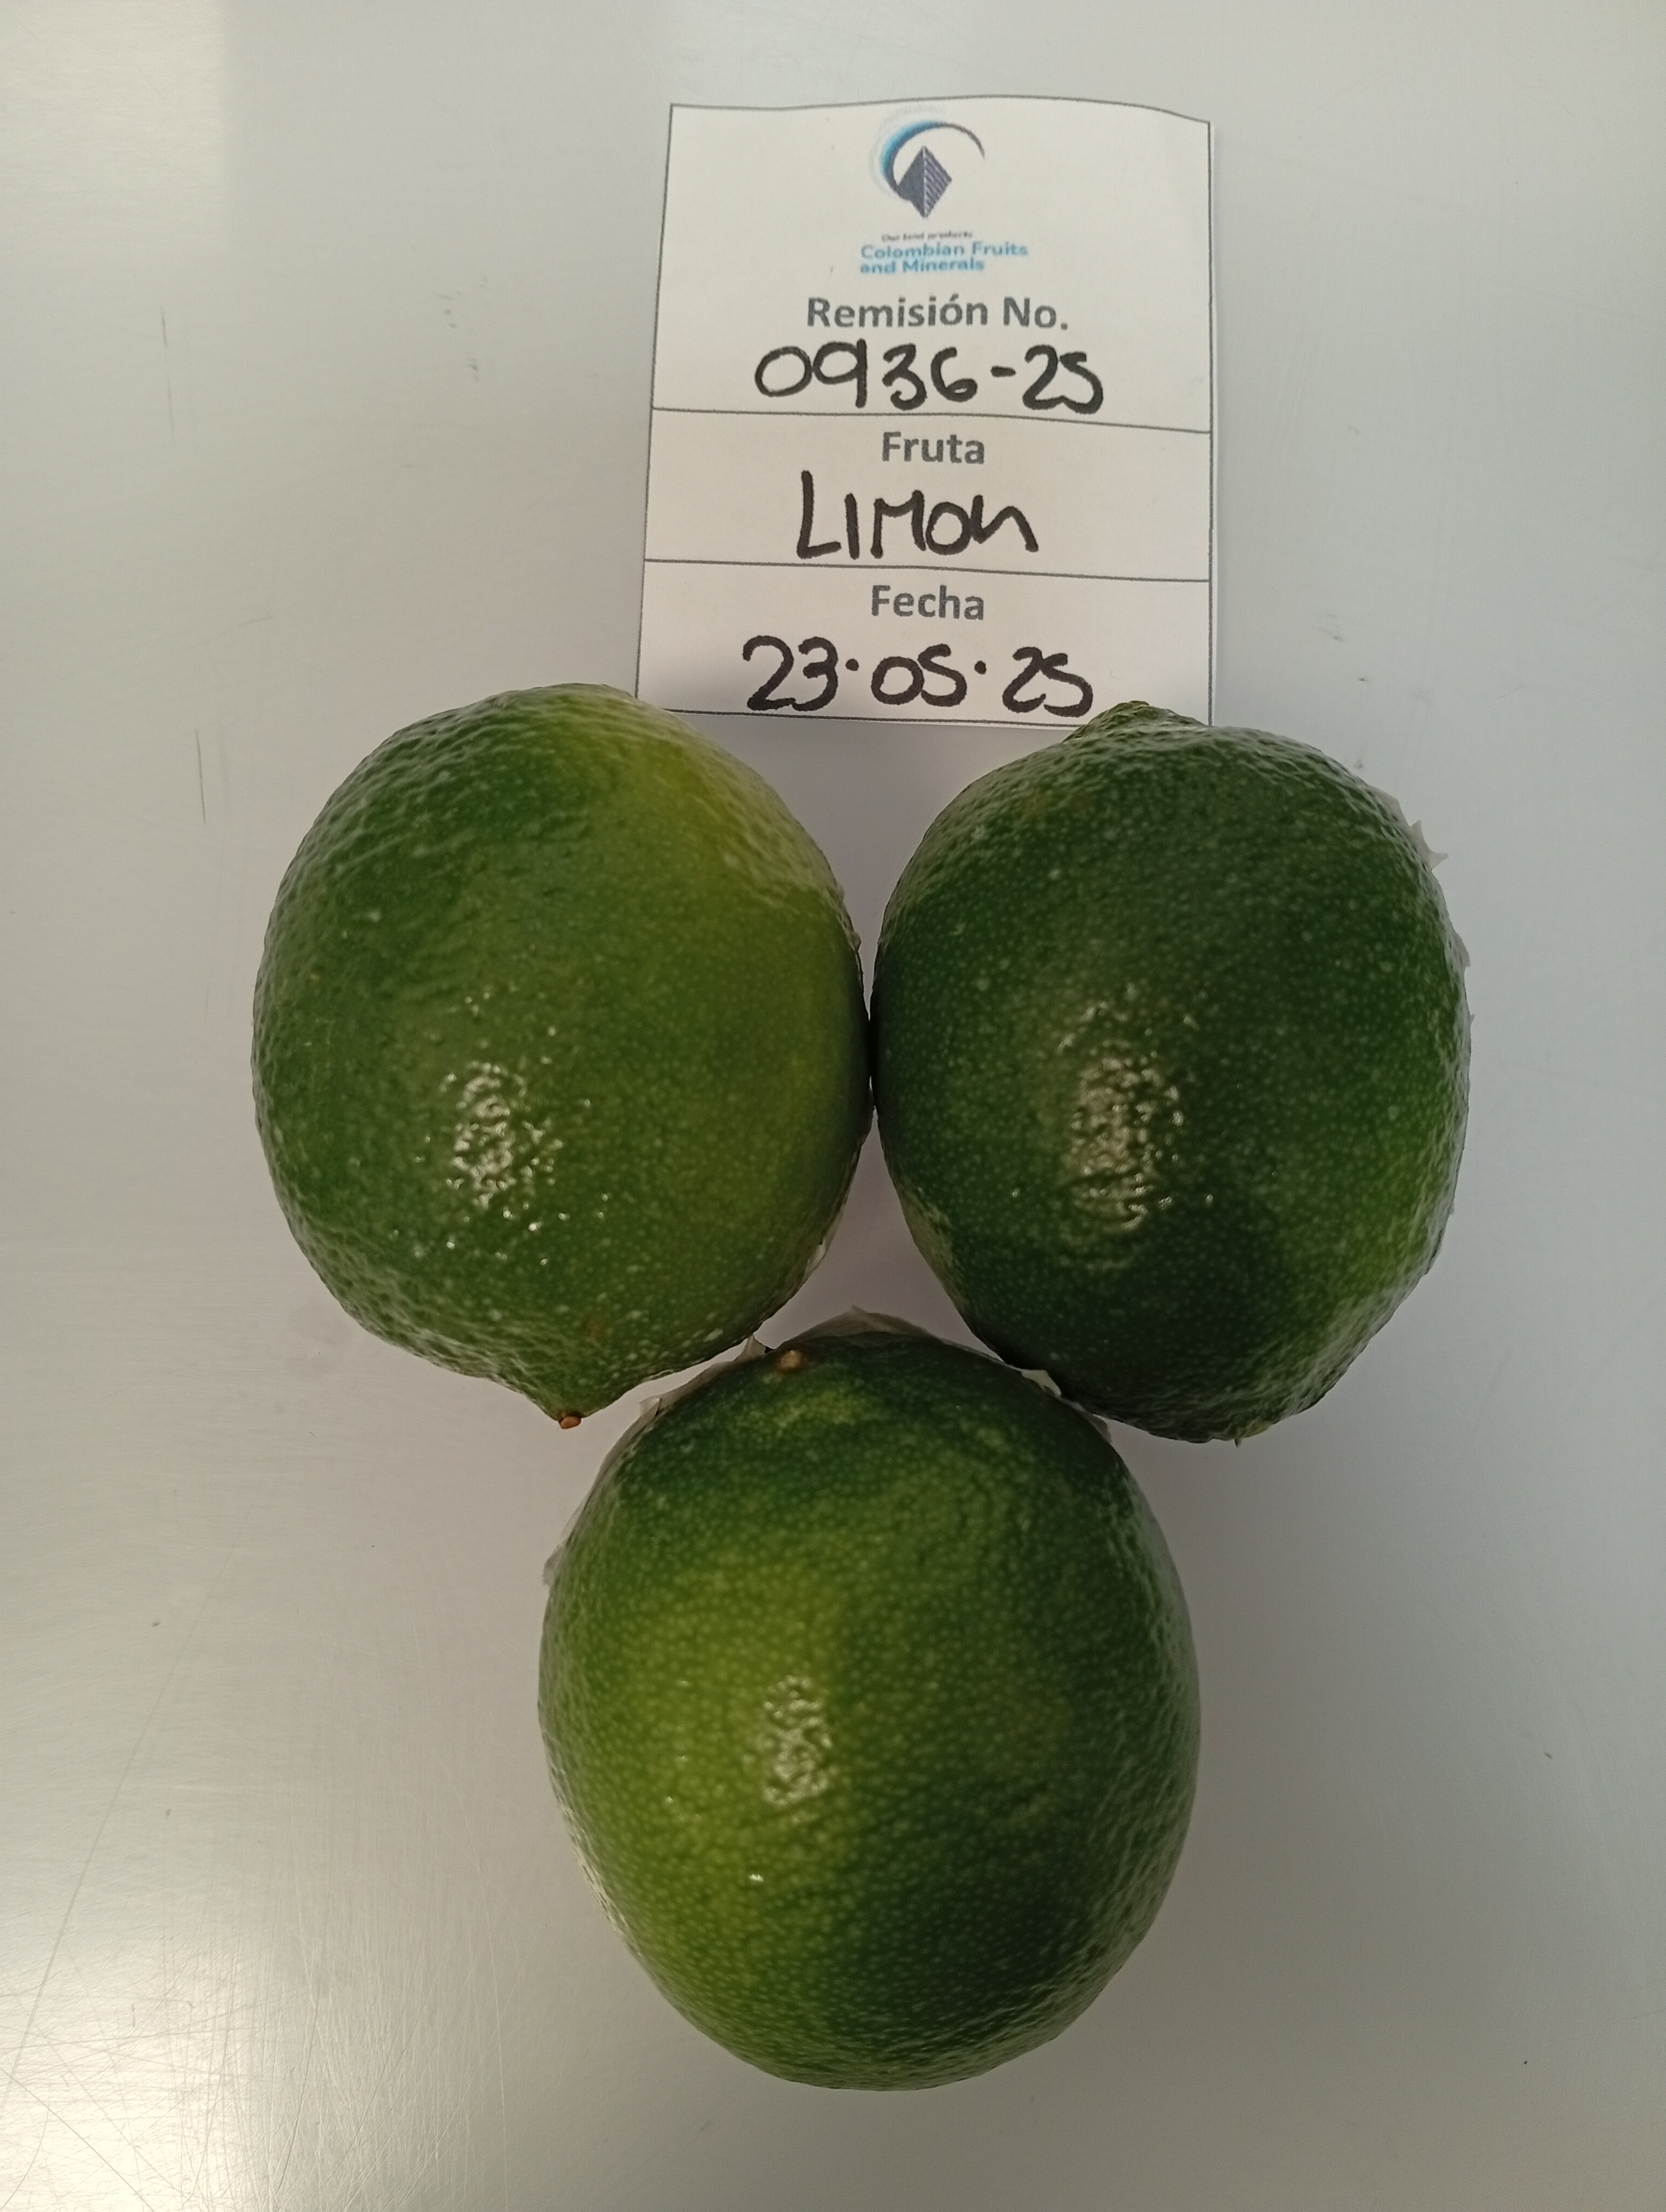 Our land products
Colombian Fruits
and Minerals
Remisión No.
0936-25
Fruta
LIMON
Fecha
23.05.25